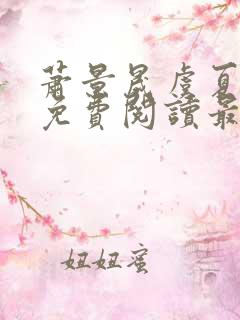 蕭景晟虞夏
免費閱讀最
妞妞蜜